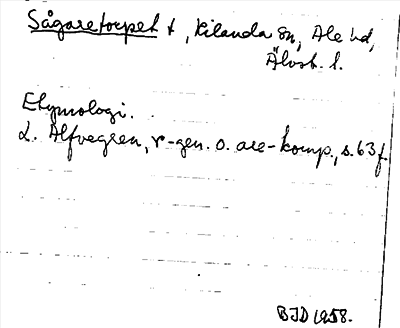 Sågaretorpet †, Kilanda sn, Ale hd,
Älvsb. l.
Etymologi.
L. Alfvegren, r-gen. o. are-komp., s. 63 f.
BJD 1958.